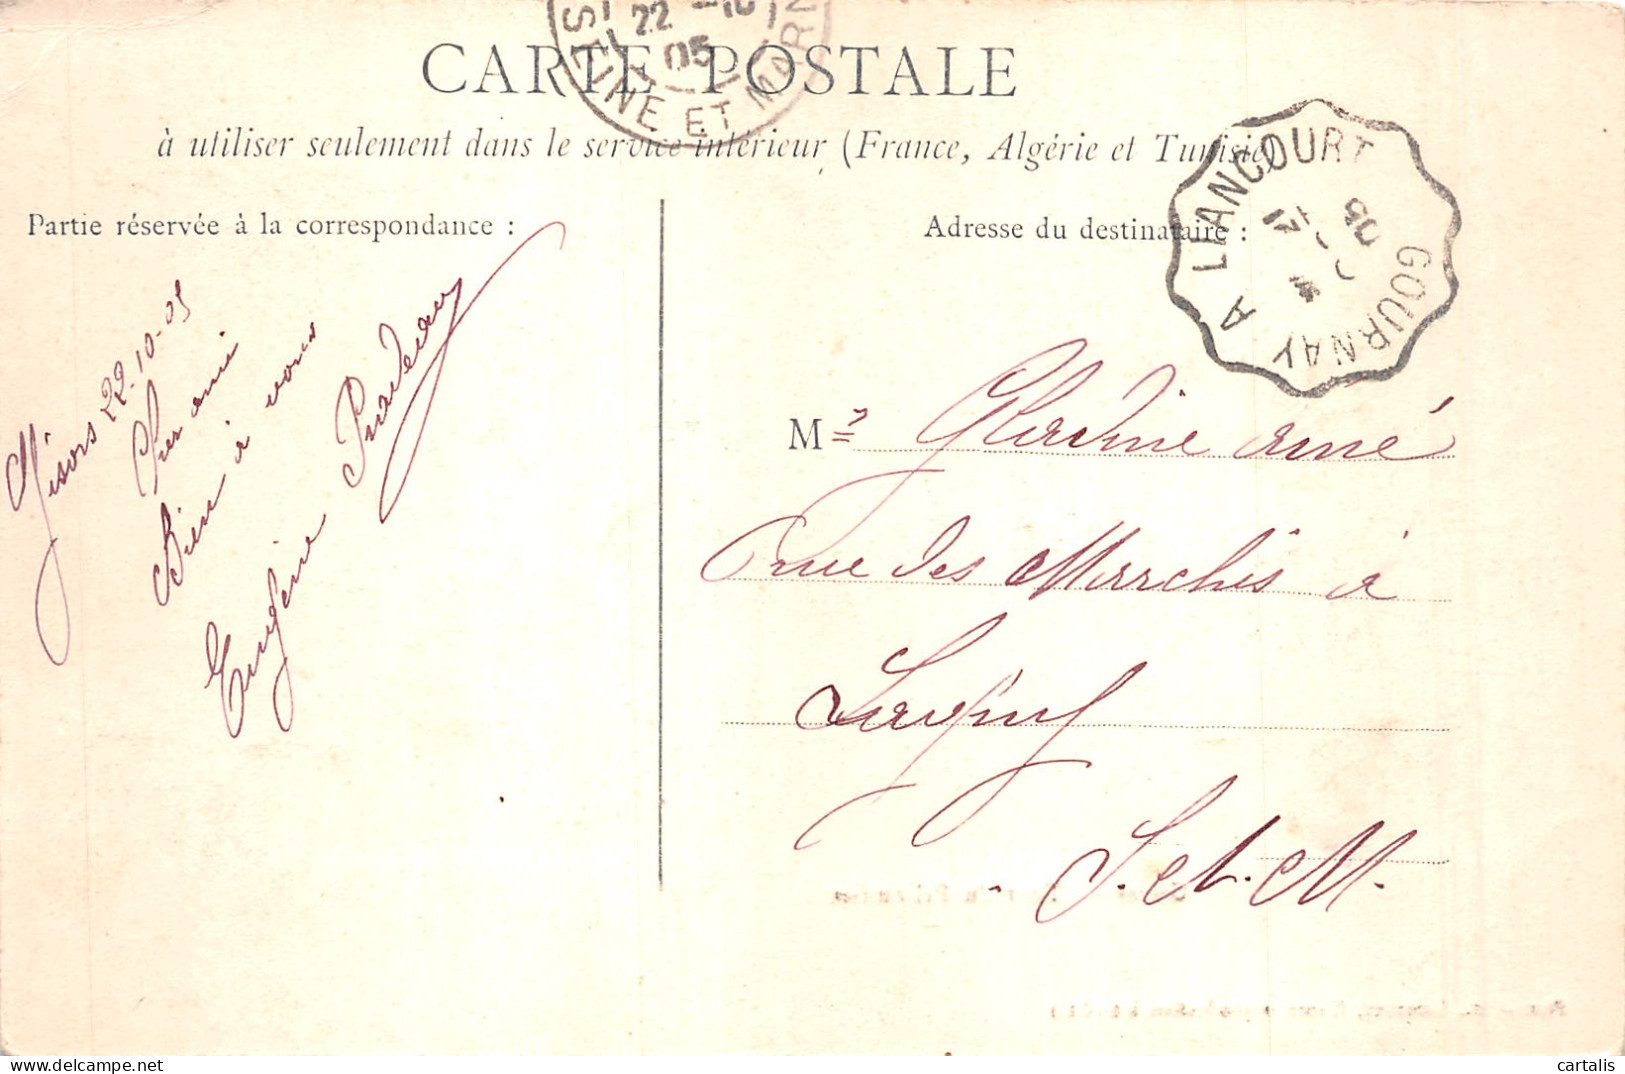 22 - 10
05
SEINE ET MARN
CARTE POSTALE
à utiliser seulement dans le service intérieur (France, Algérie et Tunisie)
GOURNAY A LIANCOURT
21
05
Partie réservée à la correspondance :
Adresse du destinataire :
Gisors 22-10-05
Cher ami
Bien à vous
Eugène
Mr Gladine ainé
rue des Marchés à
Lagny
S. et. M.
cartalis